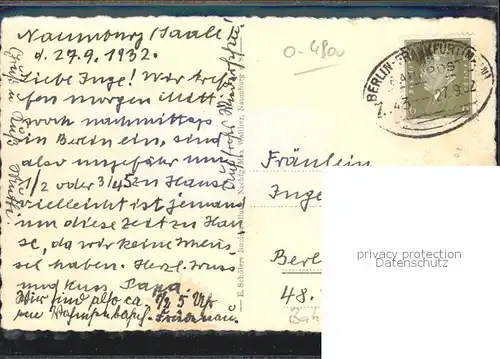 Naumburg/Saale
d. 27.9.1932.
Liebe Inge! Wir tref-
fen morgen Mitt-
woch nachmittags
in Berlin ein, sind
also ungefähr um
1/2 oder 3/4 5 zu Hause
vielleicht ist jemand
um diese Zeit zu Hau-
se, da wir keine Schlüs-
sel haben. Herzl. Gruss
und Kuss, Papa.
Wir sind also ca. 1/2 5 Uhr
am Bahnhof Friedenau.
Gruß u. Kuß Mutti
Auf frohes Wiedersehen!
Naumburg
0-4800
BERLIN-FRANKFURT(MAIN)
BAHNPOST
Fräulein
Inge
Berl
48.
privacy protection
Datenschutz